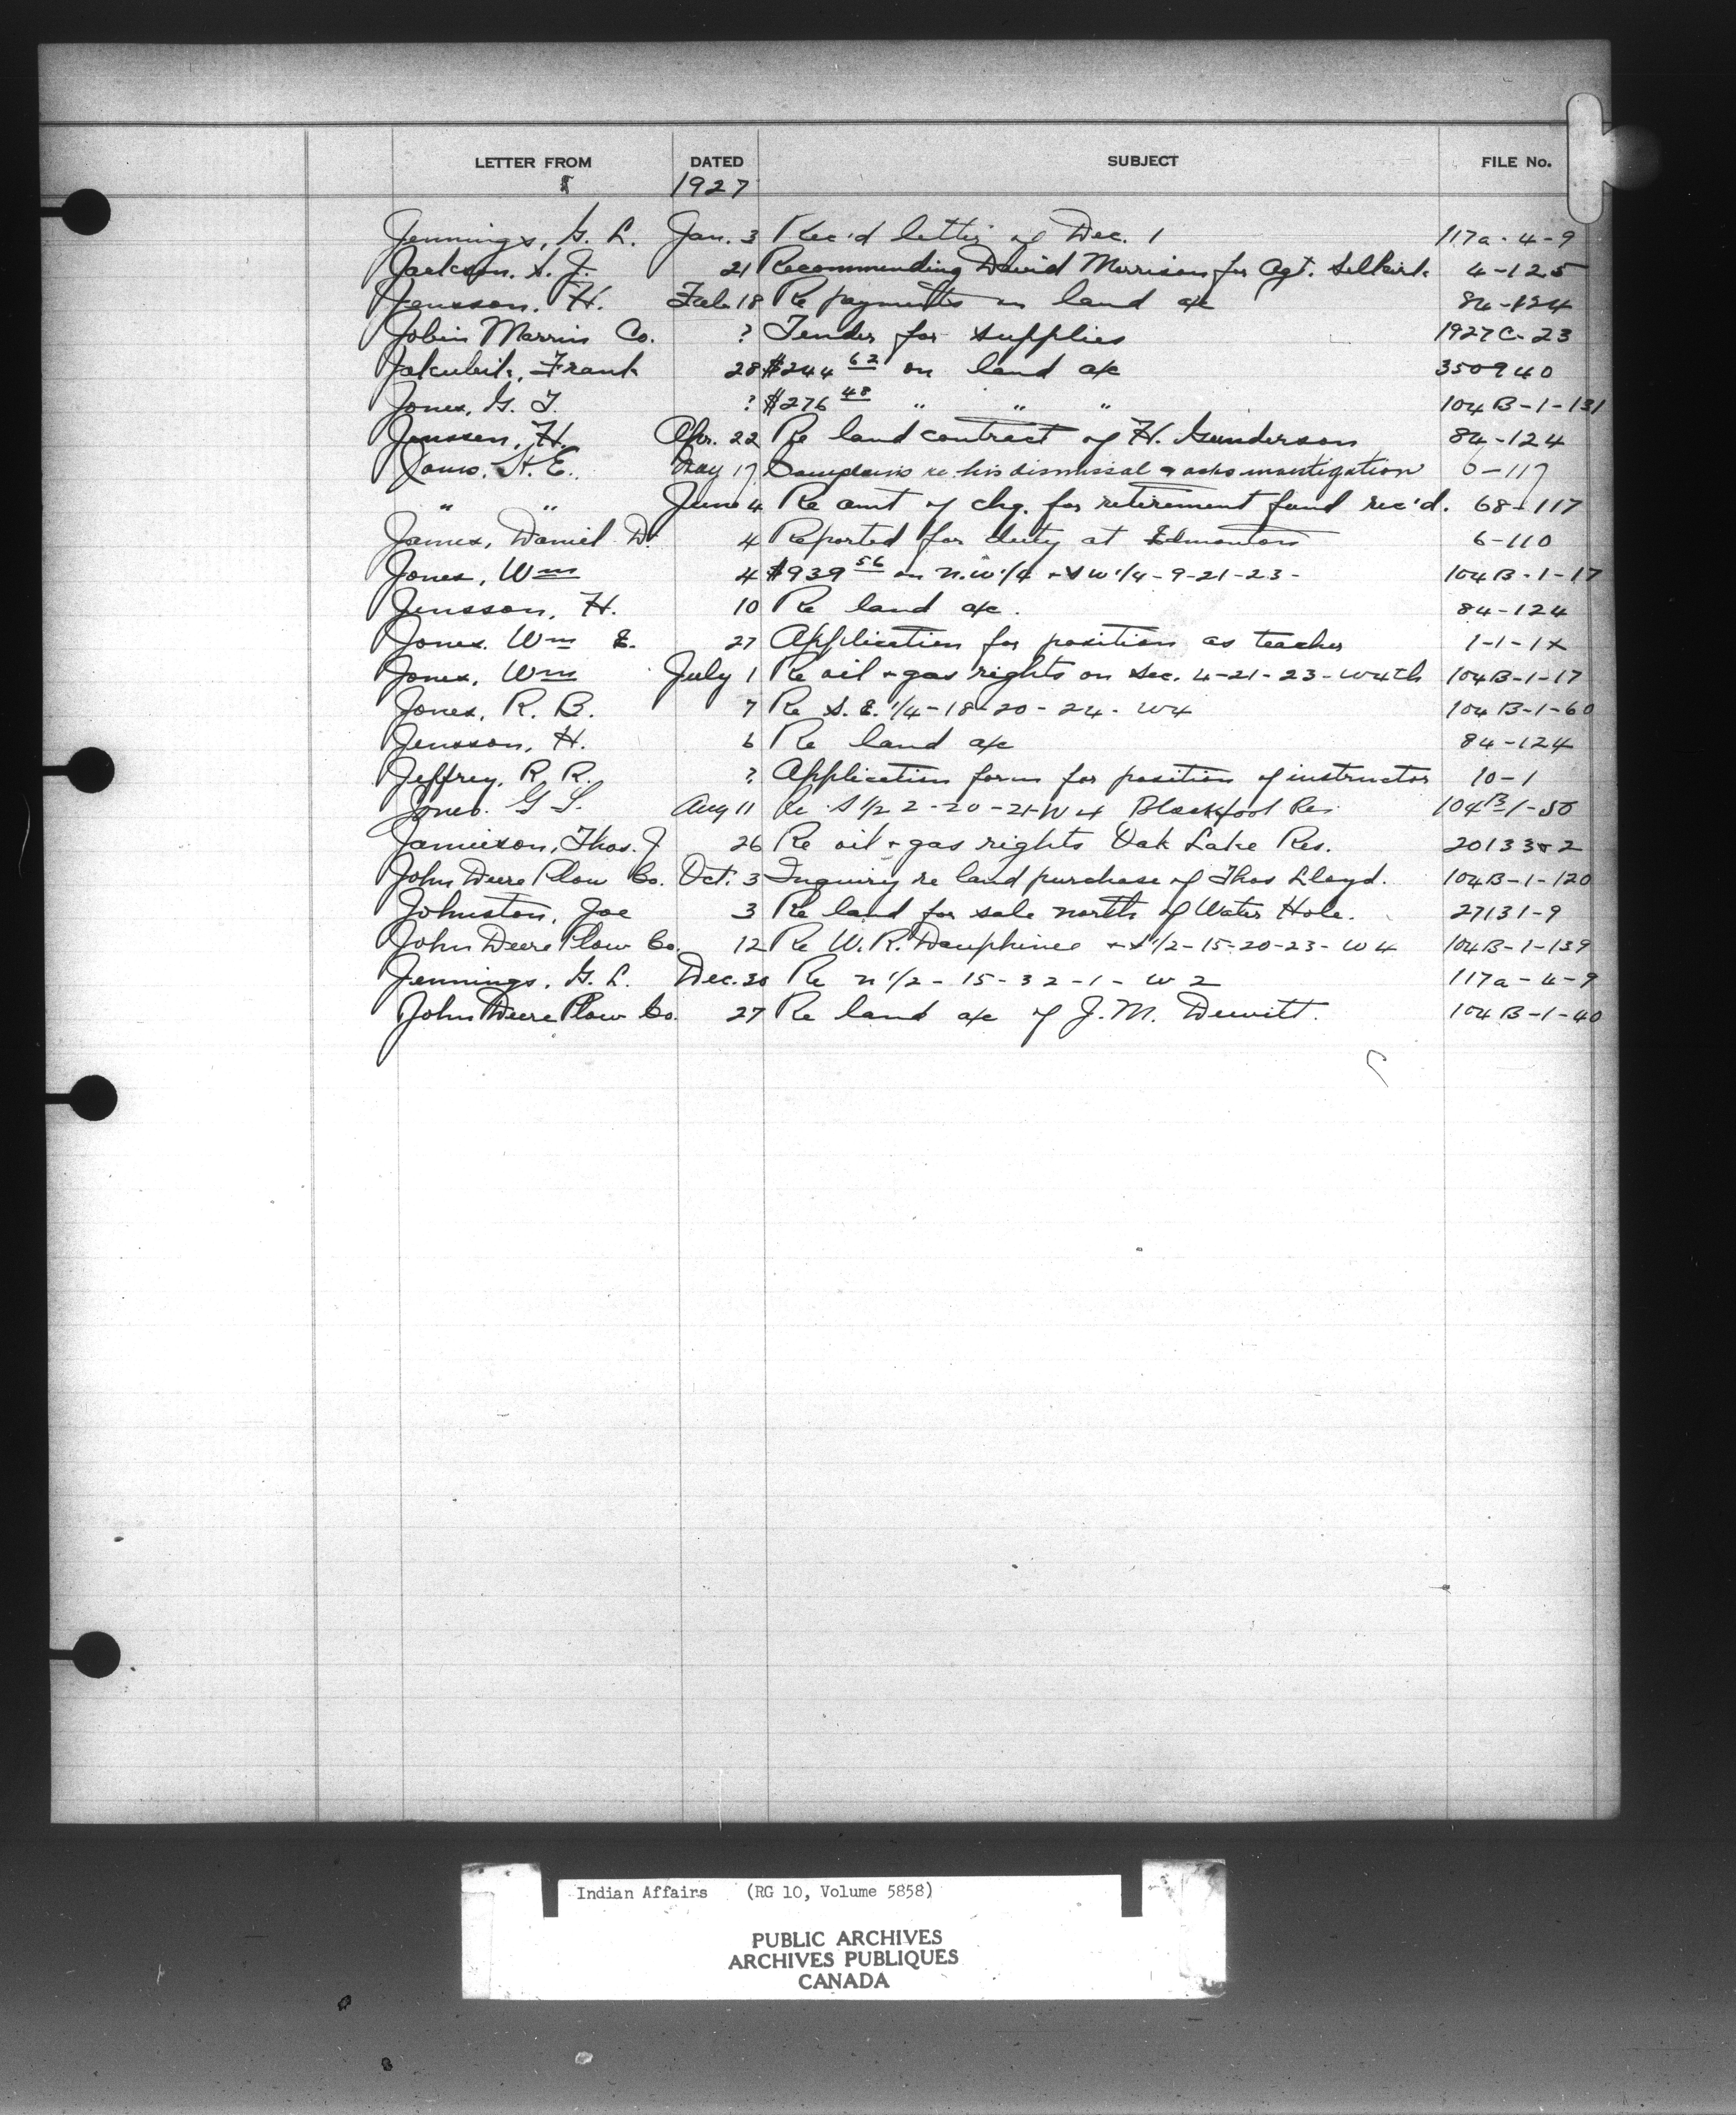 LETTER FROM DATED SUBJECT FILE No.
1927
Jennings, G. L. Jan. 3 Rec'd letter of Dec. 1 117a-4-9
Jackson, S. J. 21 Recommending David Morrison for Agt. Selkirk 4-125
Jensson, H. Feb. 18 Re payments on land a/c 84-124
Jobin Marrin Co. ? Tender for supplies 1927C-23
Jakubik, Frank 28 $244 62 on land a/c 350940
Jones, G. T. ? $276 48 " " " 104B-1-131
Jenssen, H. Apr. 22 Re land contract of H. Gunderson 84-124
H. E. May 17 Complains re his dismissal & asks investigation 6-117
" " June 4 Re amt of chq. for retirement fund rec'd. 68-117
James, Daniel D. 4 Reported for duty at Edmonton 6-110
Jones, Wm 4 $939 56 on N.W 1/4 + SW 1/4 - 9-21-23- 104B-1-17
Jensson, H. 10 Re land a/c. 84-124
Jones. Wm E. 27 Application for position as teacher 1-1-1X
Jones, Wm July 1 Re oil + gas rights on Sec. 4-21-23-W4th 104B-1-17
Jones, R. B. 7 Re S. E. 1/4-18-20-24-W4 104B-1-60
Jensson, H. 6 Re land a/c 84-124
Jeffrey, R. R. ? Application form for position of instructor 10-1
Jones. G Aug 11 Re S 1/2 2-20-21-W4 Blackfoot Res 104B/1-50
Jamieson, Thos. J 26 Re oil + gas rights Oak Lake Res. 20133-2
John Deere Plow Co. Oct. 3 Inquiry re land purchase of Thos Lloyd. 104B-1-120
Johnston, Joe 3 Re land for sale north of Water Hole. 27131-9
John Deere Plow Co. 12 Re W. R. Dauphinee + S 1/2-15-20-23-W4 104B-1-139
Jennings, G. L. Dec. 30 Re N 1/2-15-32-1-W2 117a-4-9
John Deere Plow Co. 27 Re land a/c of J. M. Dewitt. 104B-1-40
Indian Affairs (RG 10, Volume 5858)
PUBLIC ARCHIVES
ARCHIVES PUBLIQUES
CANADA